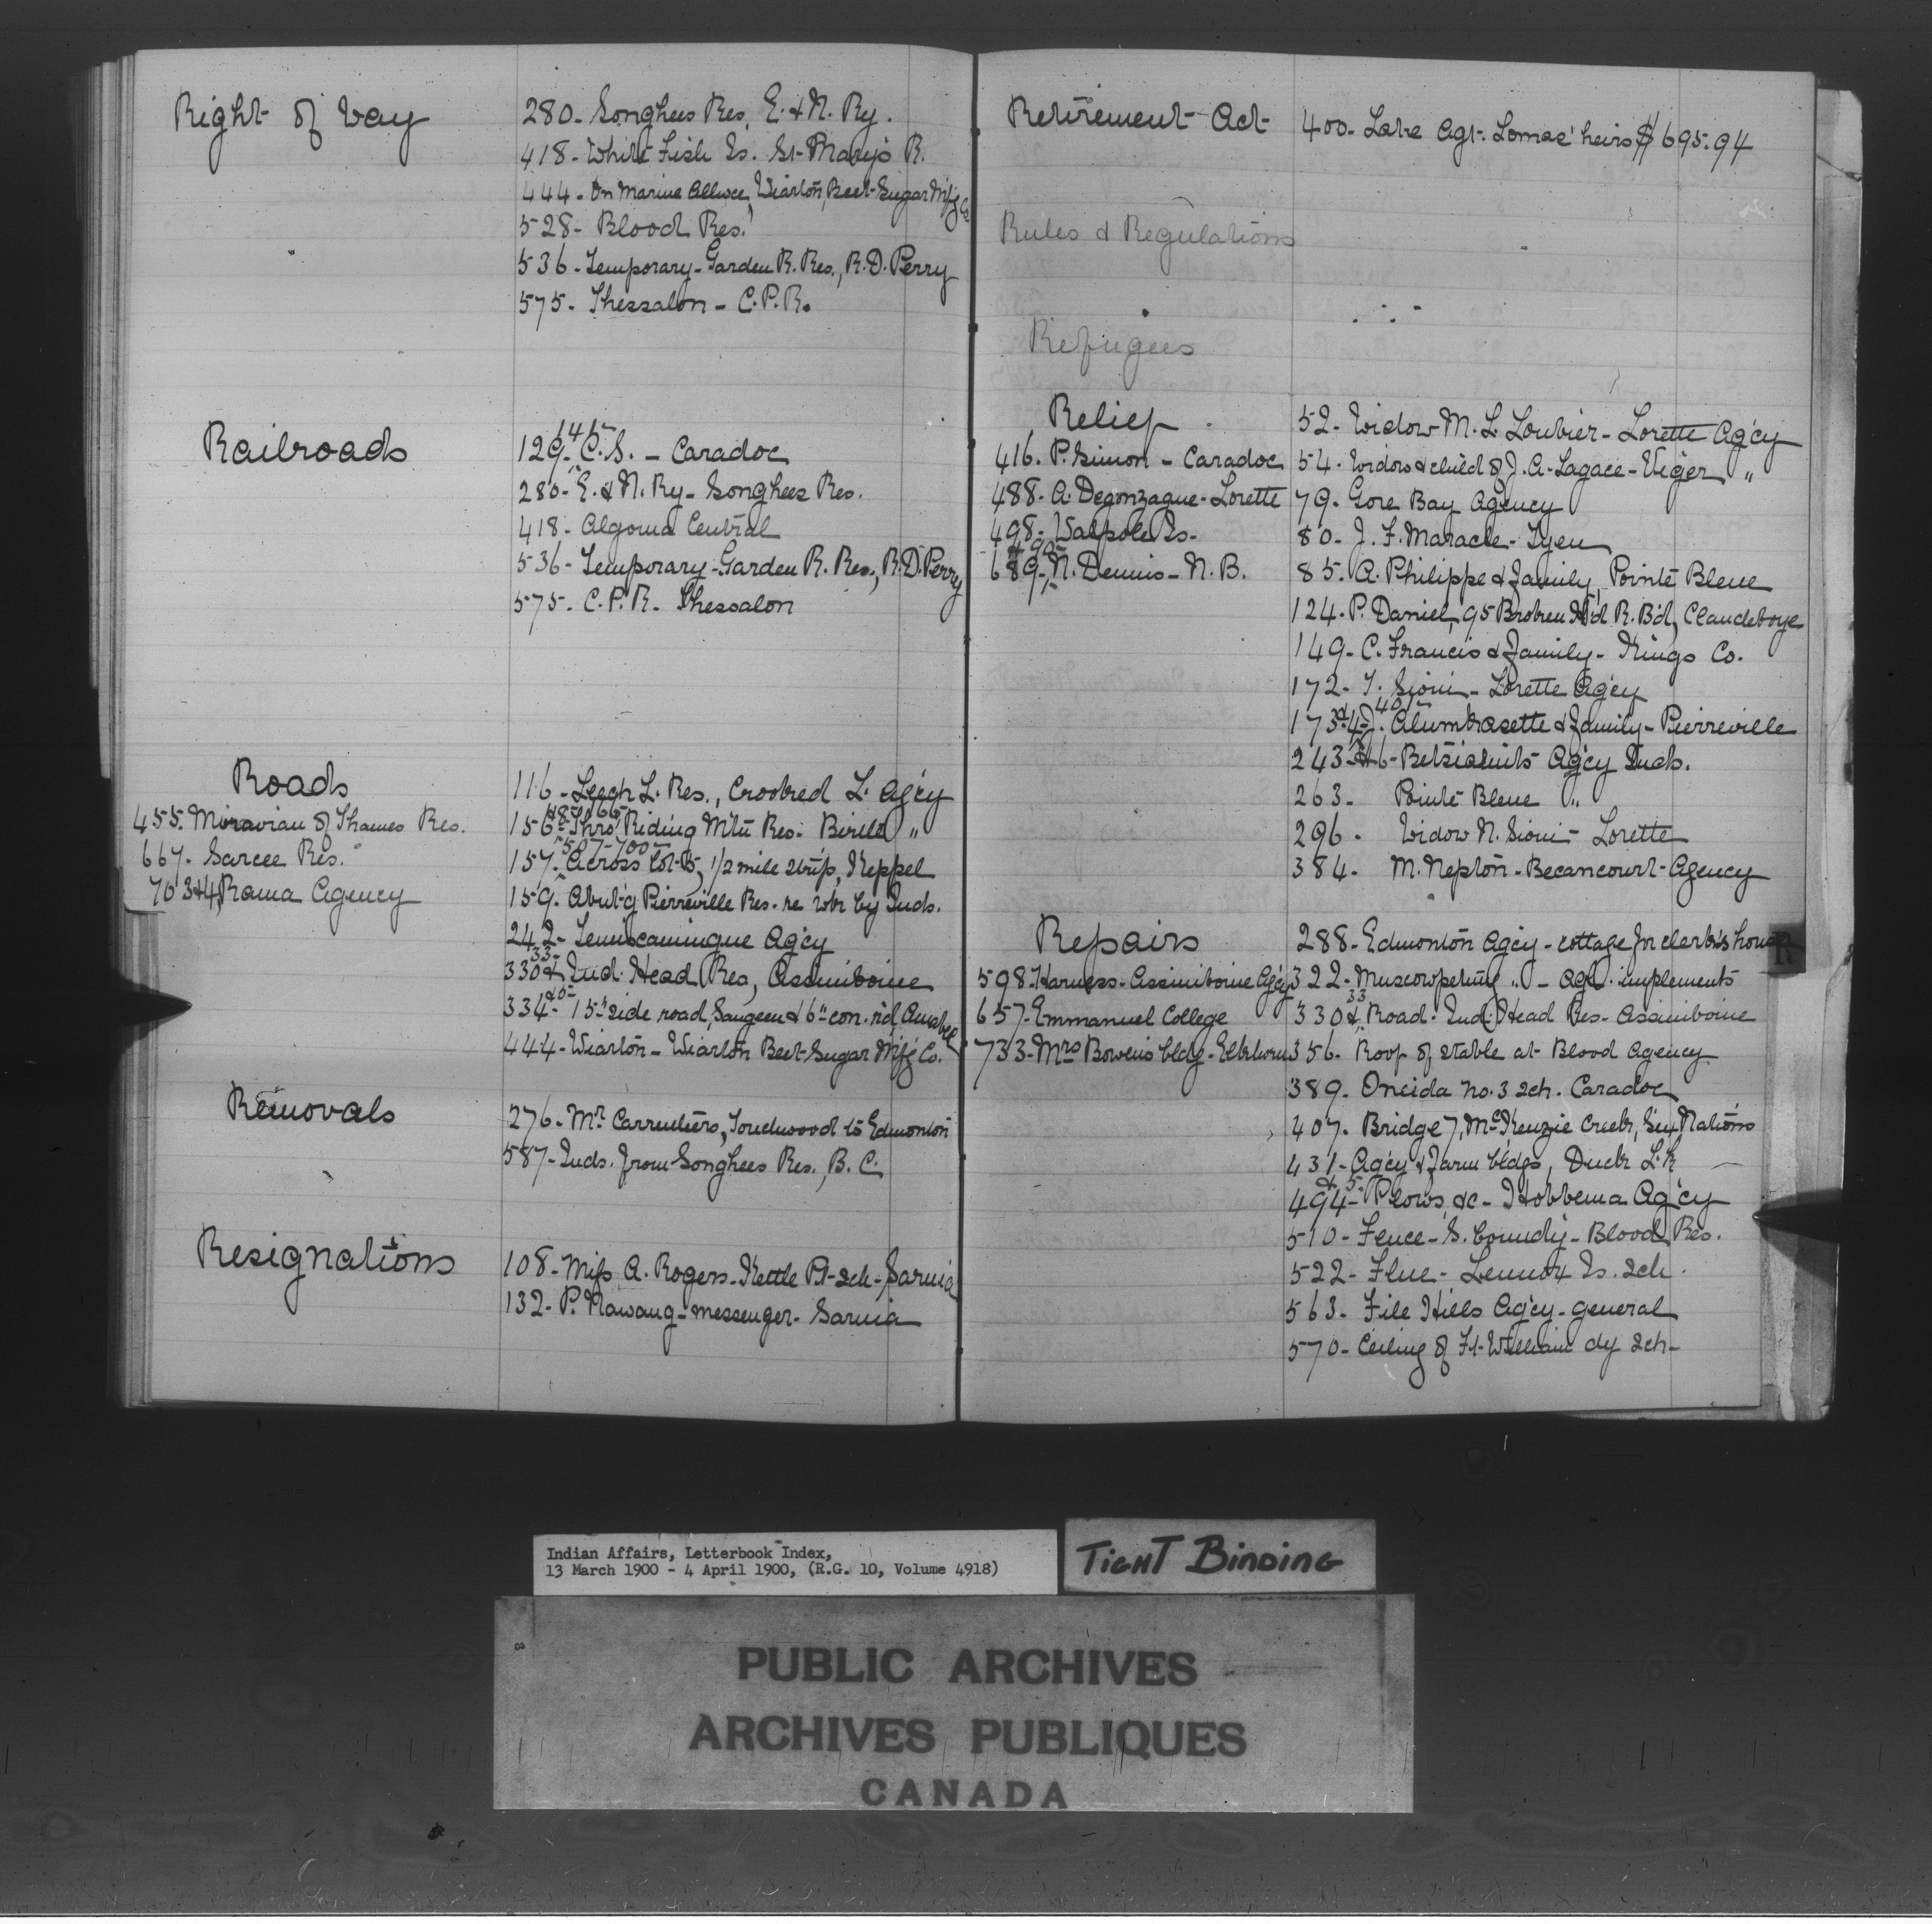 Right of Way
280- Songhees Res, E. & N. Ry.
418- White Fish Is. St. Mary's R.
444- On Marine Allwce, Wiarton, Beet Sugar M'f'g Co
528- Blood Res.
536- Temporary- Garden R. Res., R.D. Perry
575- Thessalon - C.P.R.
Railroads
129- 145- C.S. - Caradoc
280- E. & N. Ry- Songhees Res.
418- Algoma Central
536- Temporary- Garden R. Res., R.D. Perry
575- C.P.R. Thessalon
Roads
455. Moravian of Thames Res.
667. Sarcee Res.
703&4, Rama Agency
116- Leech L. Res., Crooked L. Ag'cy
156- Thro' Riding Mtn Res. Birtle "
157. 507-700- Across lot 15, 1/2 mile strip, Keppel
159. Abut'g Pierreville Res. re by Inds.
242- Temiscamingue Ag'cy
330 & 33- Ind. Head Res, Assiniboine
334- & 5- 15" side road, Saugeen & 6" con. rd, Amabel
444- Wiarton- Wiarton Beet Sugar M'f'g Co.
Removals
276- Mr Carruthers, Touchwood to Edmonton
587- Inds. from Songhees Res., B.C.
Resignations
108- Miss A. Rogers- Kettle Pt. sch- Sarnia
132- P. Nawaug- messenger- Sarnia
Retirement Act
400- Late Agt. Lomas' heirs $695.94
Rules & Regulations
Refugees
Relief
416. P. Simon - Caradoc
488- A. Degonzague- Lorette
498- Walpole Is-
689- & 90- N. Dennis- N.B.
52- Widow M. L. Loubier- Lorette Ag'cy
54- Widow & child of J. A. Lagace- Viger "
79- Gore Bay Agency
80- J. F. Maracle- Tyen
85. A. Philippe & family, Pointe Bleue
124. P. Daniel, 95 Broken H'd R. B'd, Clandeboye
149- C. Francis & family- Kings Co.
172- T. Sioui- Lorette Ag'cy
173 & 4- 401- J. Alumkasette & family- Pierreville
243 & 6- Betsiamits Ag'cy Inds.
263- Pointe Bleue "
296. Widow N. Sioui- Lorette
384- M. Nepton- Becancourt Agency
Repairs
598- Harness- Assiniboine Ag'cy
657- Emmanuel College
733- Mrs Bowen's bldg- Elkhorn
288- Edmonton Ag'cy- cottage for clerk's house
322- Muscowpetung " - Agl. implements
330 & 33 Road- Ind. Head Res- Assiniboine
356- Roof of stable at Blood Agency
389- Oneida No. 3 sch. Caradoc
407. Bridge 7, McKenzie Creek, Six Nations
431- Ag'cy & farm bldgs, Duck L'k
494- & 5- Plows, &c- Hobbema Ag'cy
510- Fence- S. boundy- Blood Res.
522- Flue- Lennox Is. sch-
563- File Hills Ag'cy- general
570- Ceiling of Ft. William dy sch-
R
Indian Affairs, Letterbook Index,
13 March 1900 - 4 April 1900, (R.G. 10, Volume 4918)
TIGHT BINDING
PUBLIC ARCHIVES
ARCHIVES PUBLIQUES
CANADA